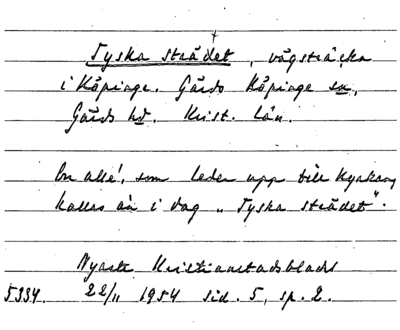 Tyska strädet, vägsträcka
i Köpinge. Gärds Köpinge sn,
Gärds hd. Krist. län.
En allé, som leder upp till kyrkan,
kallas än i dag „Tyska strädet".
Nyaste Kristianstadsbladet
5334. 22/11 1954 sid. 5, sp. 2.